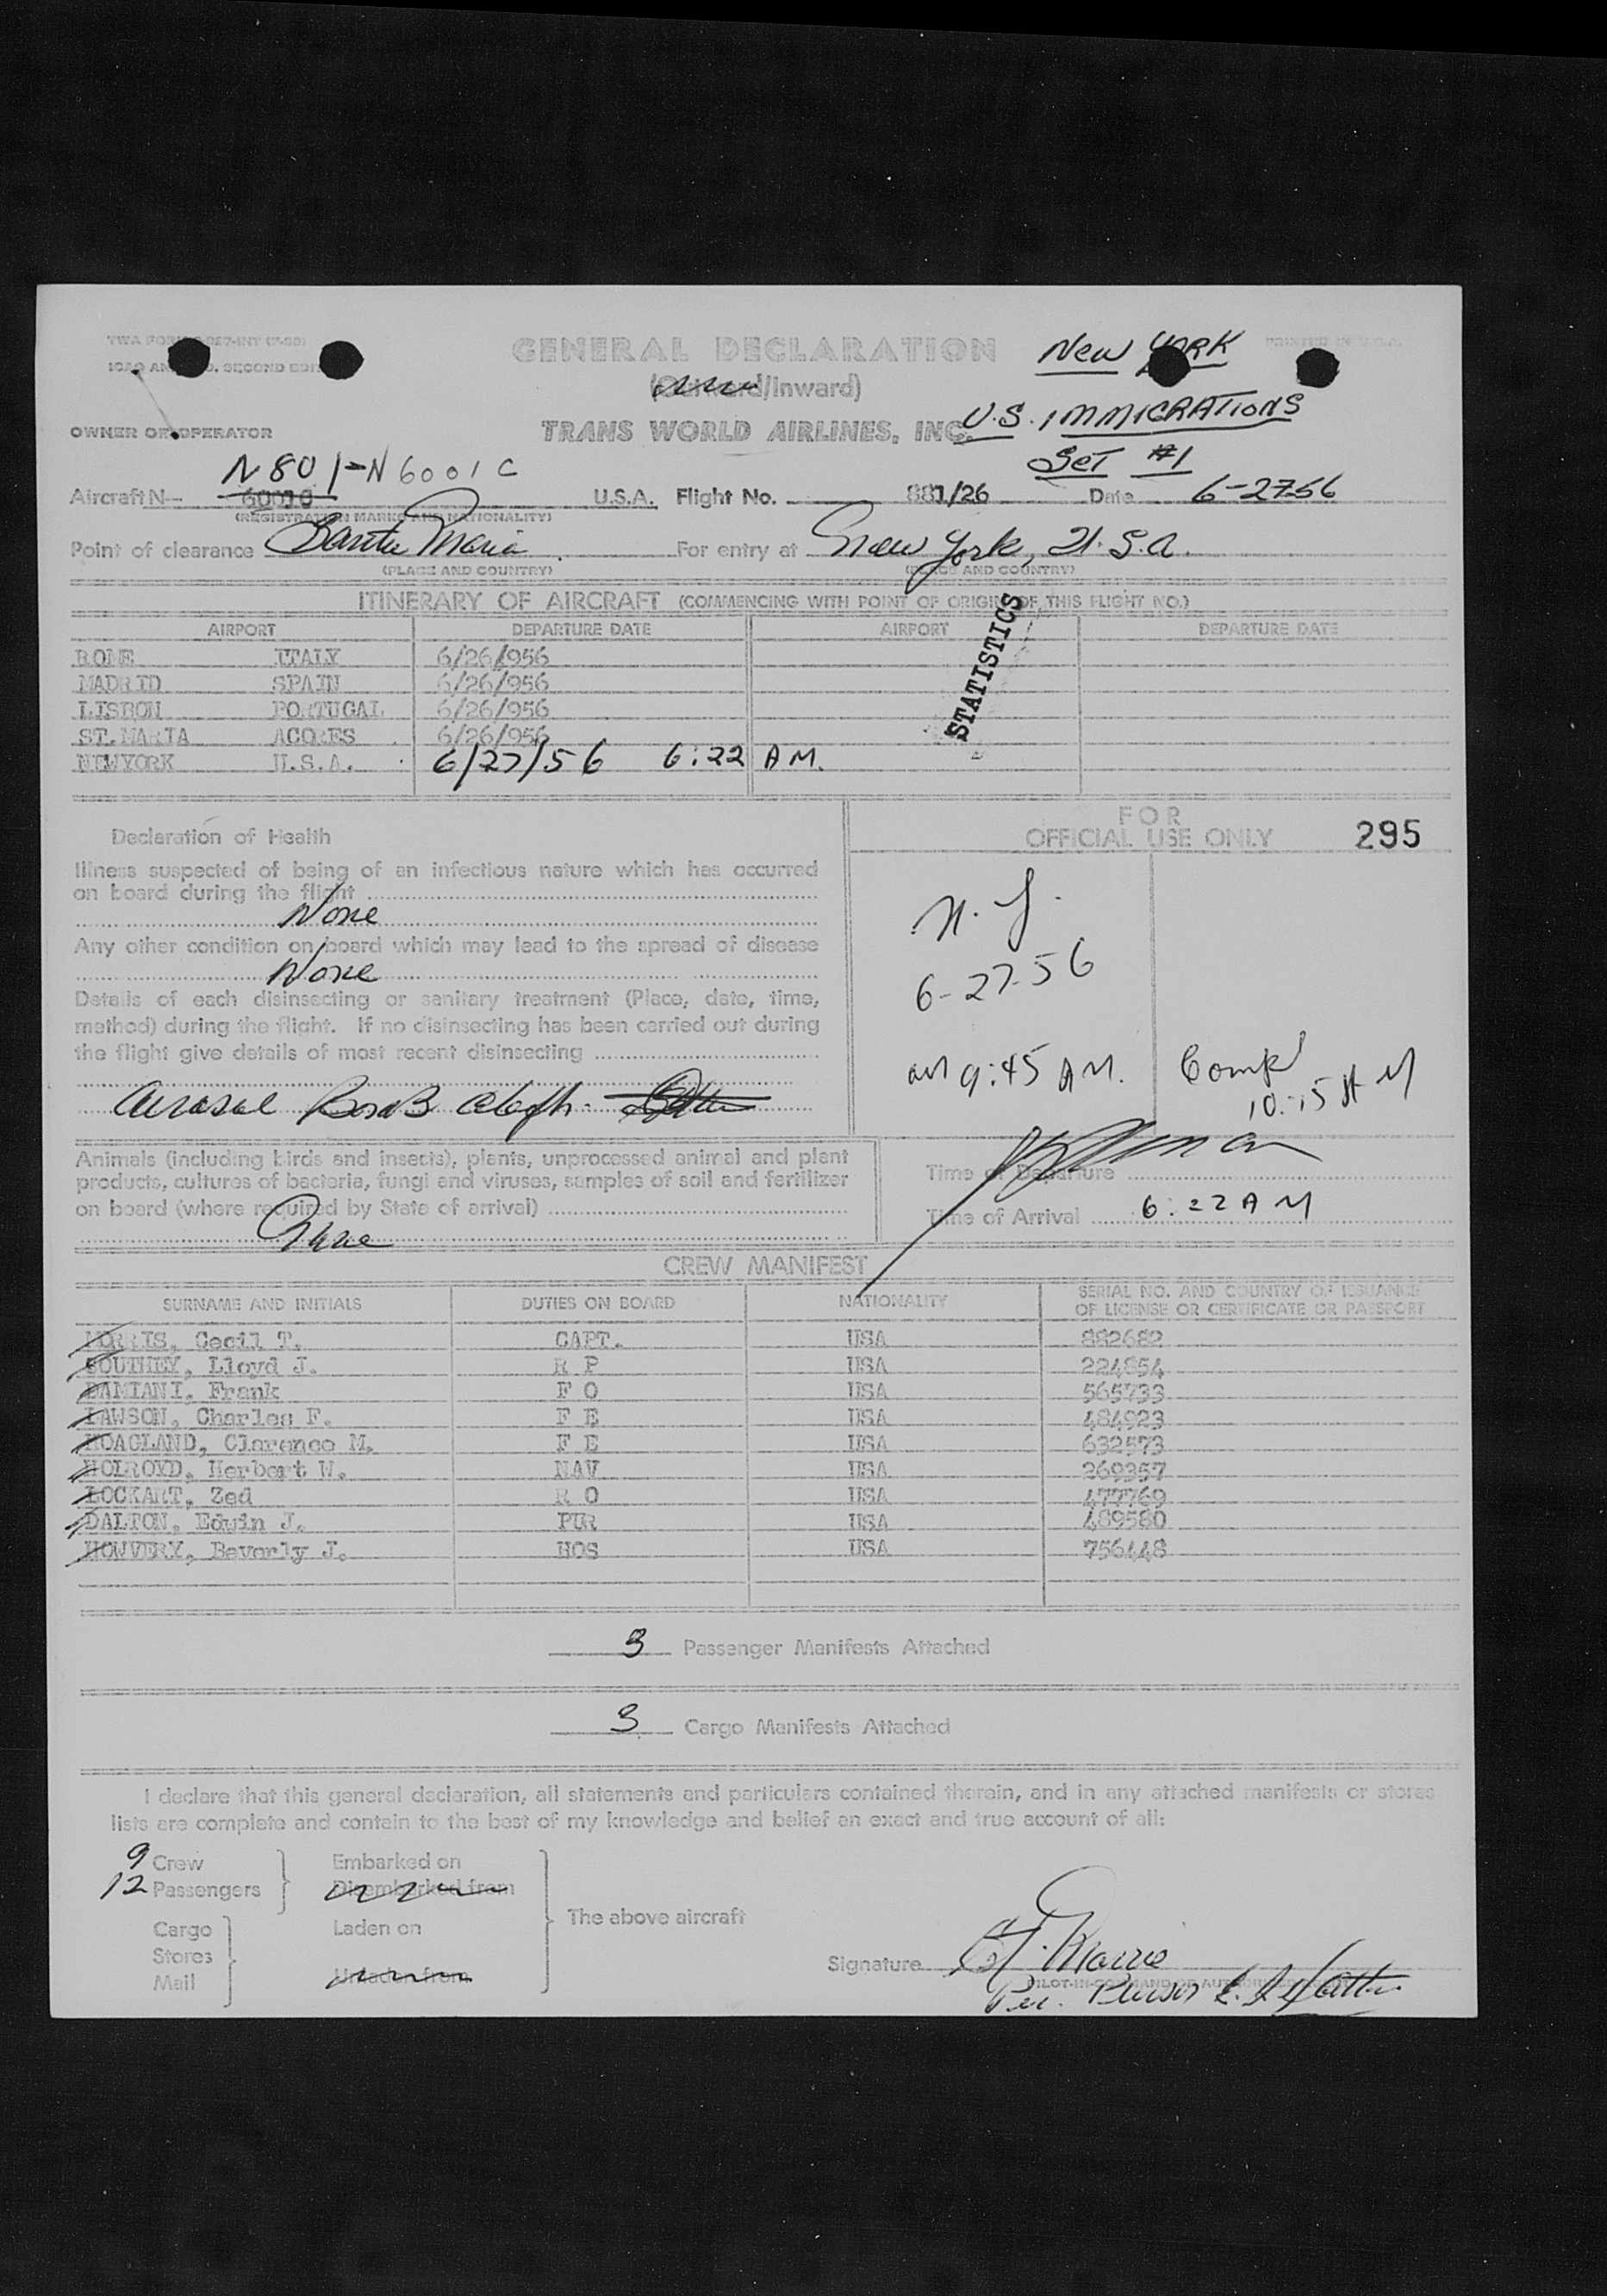 GENERAL DECLARATION
New YORK
(Outward/Inward)
U.S. IMMIGRATIONS
OWNER OR OPERATOR TRANS WORLD AIRLINES, INC.
SET #1
N801-N6001C
Aircraft N U.S.A. Flight No. 881/26 Date 6-27-56
(REGISTRATION MARKS AND NATIONALITY)
Point of clearance Santa Maria For entry at New York, U.S.A.
(PLACE AND COUNTRY) (PLACE AND COUNTRY)
ITINERARY OF AIRCRAFT (COMMENCING WITH POINT OF ORIGIN OF THIS FLIGHT NO.)
AIRPORT DEPARTURE DATE AIRPORT DEPARTURE DATE
ROME ITALY 6/26/956
MADRID SPAIN 6/26/956
LISBON PORTUGAL 6/26/956
ST.MARIA ACORES 6/26/956
NEWYORK U.S.A. 6/27/56 6:22 AM.
STATISTICS
Declaration of Health
Illness suspected of being of an infectious nature which has occurred
on board during the flight
None
Any other condition on board which may lead to the spread of disease
None
Details of each disinsecting or sanitary treatment (Place, date, time,
method) during the flight. If no disinsecting has been carried out during
the flight give details of most recent disinsecting
Aerosol Bomb
Animals (including birds and insects), plants, unprocessed animal and plant
products, cultures of bacteria, fungi and viruses, samples of soil and fertilizer
on board (where required by State of arrival)
None
FOR
OFFICIAL USE ONLY 295
N.Y.
6-27-56
9:45 AM. Compl
10:15 AM
Time of Departure
Time of Arrival 6:22 AM
CREW MANIFEST
SURNAME AND INITIALS DUTIES ON BOARD NATIONALITY SERIAL NO. AND COUNTRY OF ISSUANCE
OF LICENSE OR CERTIFICATE OR PASSPORT
MORRIS, Cecil T. CAPT. USA 882682
SOUTHEY, Lloyd J. R P USA 224854
DAMIANI, Frank F O USA 565733
LAWSON, Charles F. F E USA 484923
HOAGLAND, Clarence M. F E USA 632573
HOLROYD, Herbert W. NAV USA 269357
LOCKART, Zed R O USA 477769
DALTON, Edwin J. PUR USA 489580
HOWVERY, Beverly J. HOS USA 756448
3 Passenger Manifests Attached
3 Cargo Manifests Attached
I declare that this general declaration, all statements and particulars contained therein, and in any attached manifests or stores
lists are complete and contain to the best of my knowledge and belief an exact and true account of all:
9 Crew Embarked on
12 Passengers Disembarked from
The above aircraft
Cargo Laden on
Stores
Mail Unladen from
Signature
Per. Purser